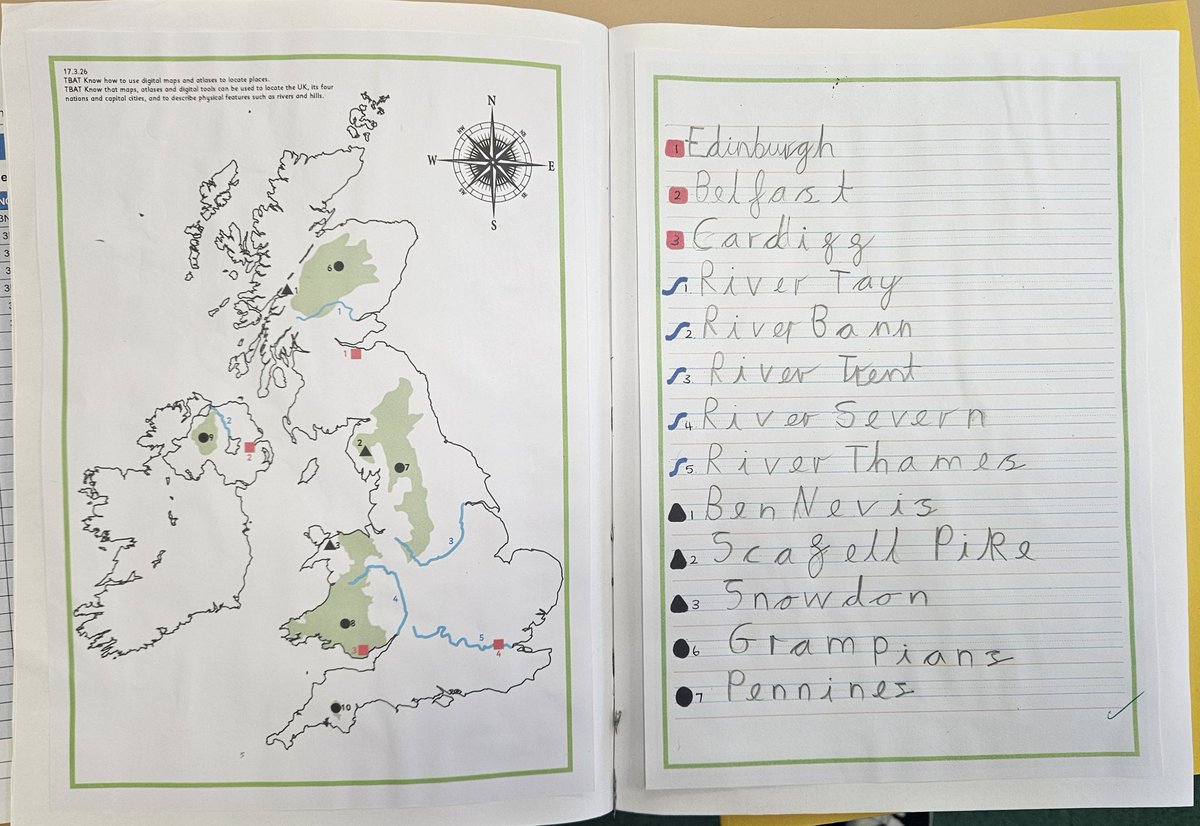 17.3.26
TBAT Know how to use digital maps and atlases to locate places.
TBAT Know that maps, atlases and digital tools can be used to locate the UK, its four
nations and capital cities, and to describe physical features such as rivers and hills.
N
NW
NE
W
E
SW
SE
S
6
1
1
1
2
9
2
2
7
3
3
4
8
5
3
4
10
1 Edinburgh
2 Belfast
3 Cardigg
1 River Tay
2 River Bann
3 River Trent
4 River Severn
5 River Thames
1 Ben Nevis
2 Scafell Pike
3 Snowdon
6 Grampians
7 Pennines